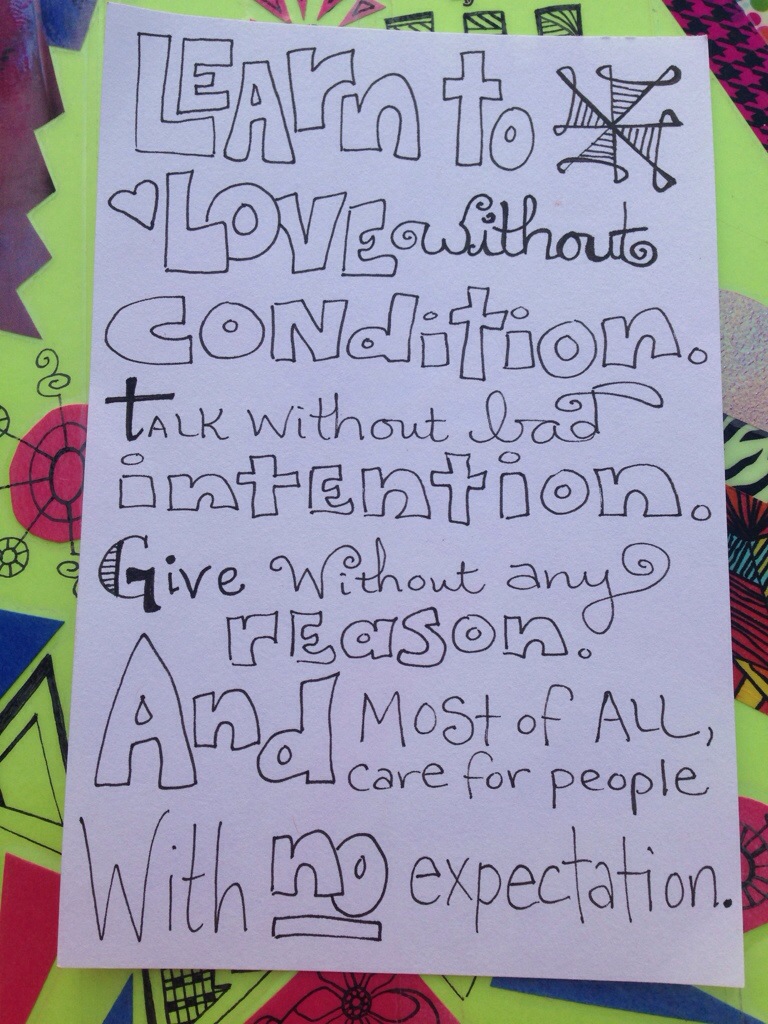 LEArn to
LOVE without
CONdition.
tALK without bad
intEntion.
Give Without any
rEason.
And Most of ALL,
care for people
With no expectation.